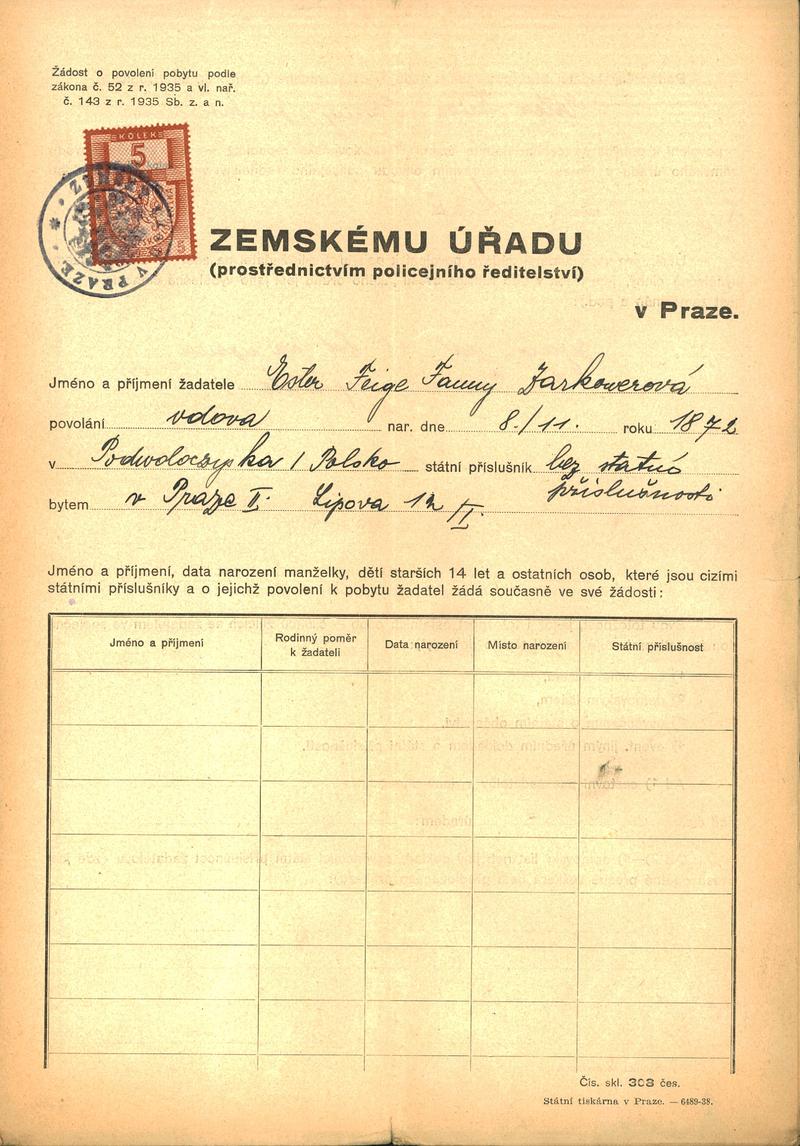 Žádost o povolení pobytu podle
zákona č. 52 z r. 1935 a vl. nař.
č. 143 z r. 1935 Sb. z. a n.
KOLEK
5
V PRAZE
ZEMSKÉMU ÚŘADU
(prostřednictvím policejního ředitelství)
v Praze.
Jméno a příjmení žadatele Ester Feige Fanny Darkowerová
povolání vdova nar. dne 8./11. roku 1872
v Podwoloczyska / Polsko státní příslušník bez státní
bytem v Praze II. Lipova 12/II. příslušnosti
Jméno a příjmení, data narození manželky, dětí starších 14 let a ostatních osob, které jsou cizími
státními příslušníky a o jejichž povolení k pobytu žadatel žádá současně ve své žádosti:
Jméno a příjmení Rodinný poměr k žadateli Data narození Místo narození Státní příslušnost
Čís. skl. 303 čes.
Státní tiskárna v Praze. — 6489-38.